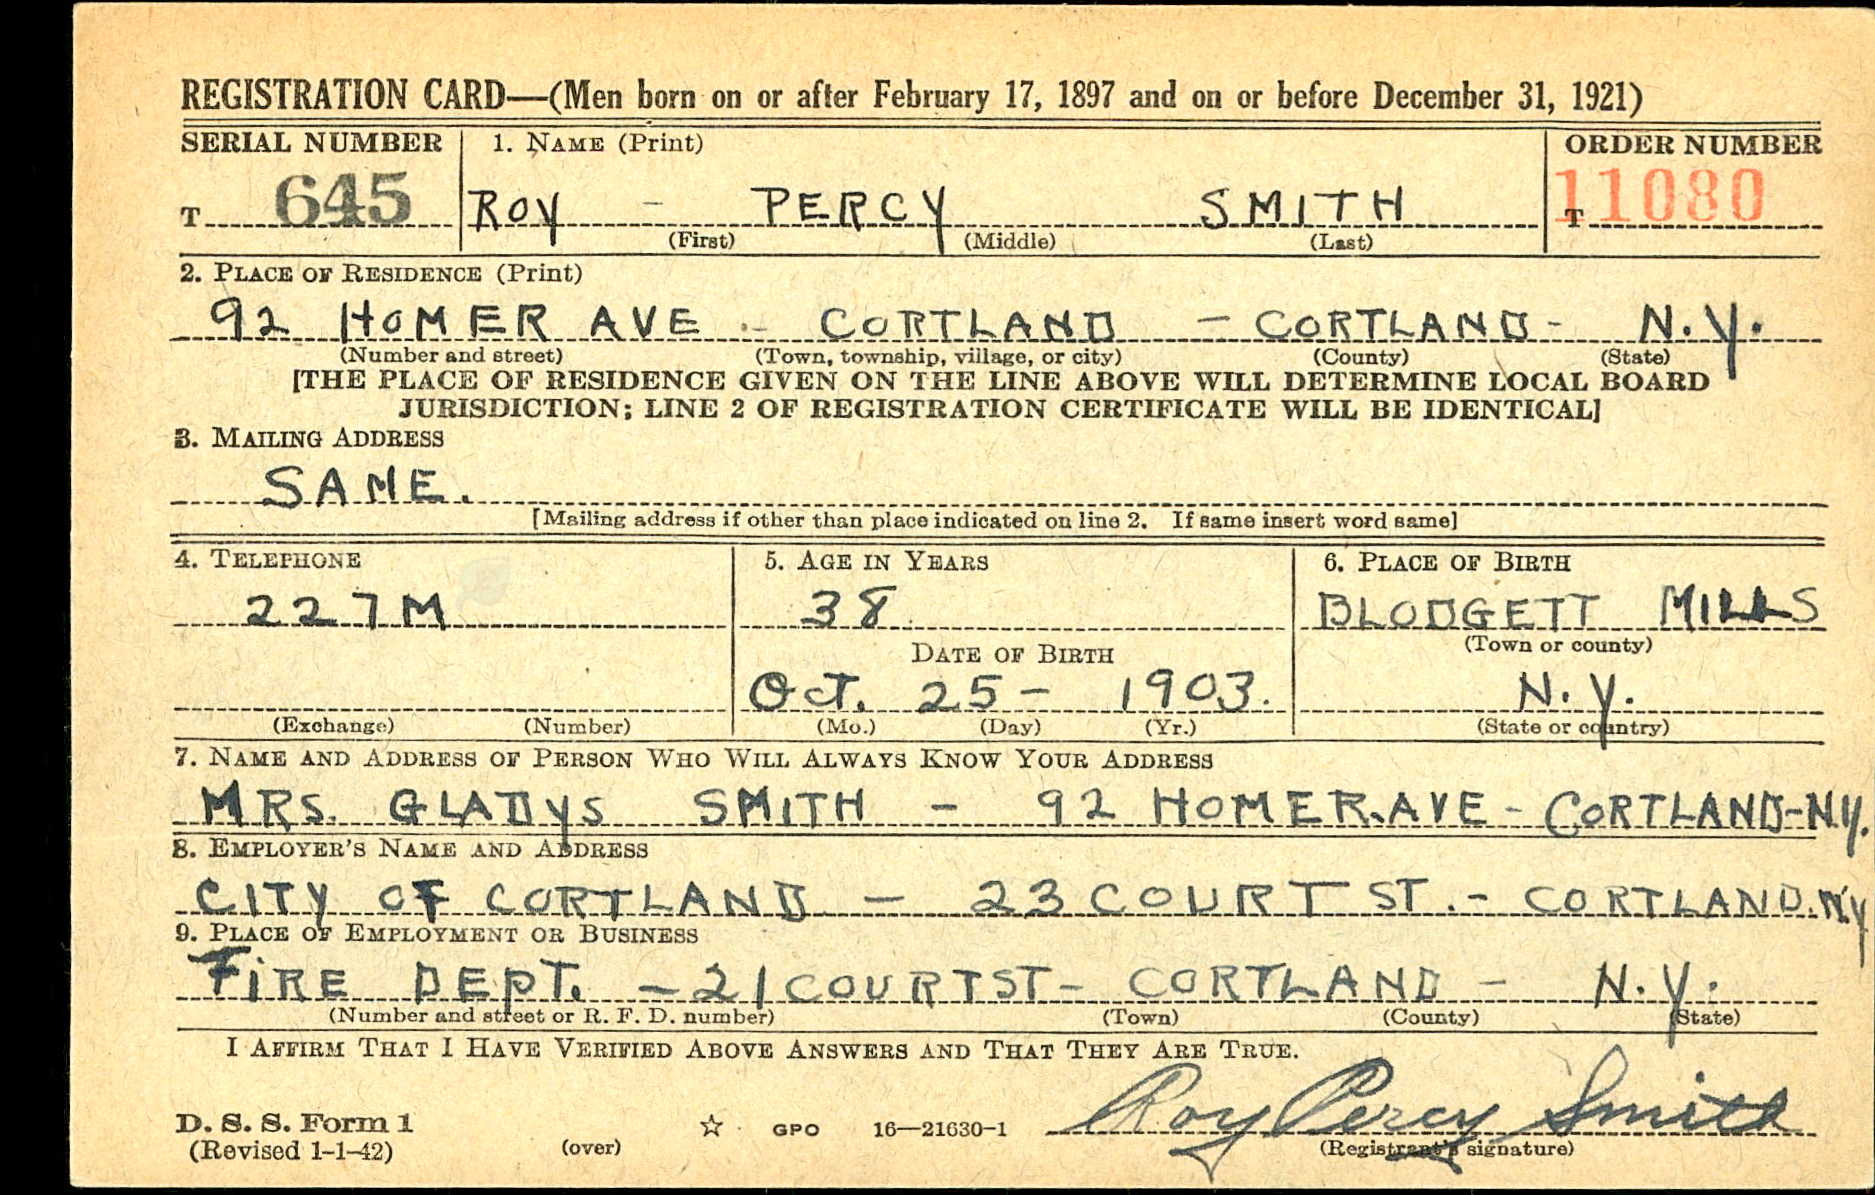 REGISTRATION CARD—(Men born on or after February 17, 1897 and on or before December 31, 1921)
SERIAL NUMBER 1. NAME (Print) ORDER NUMBER
T 645 ROY - PERCY SMITH T 11080
(First) (Middle) (Last)
2. PLACE OF RESIDENCE (Print)
92 HOMER AVE - CORTLAND - CORTLAND - N.Y.
(Number and street) (Town, township, village, or city) (County) (State)
[THE PLACE OF RESIDENCE GIVEN ON THE LINE ABOVE WILL DETERMINE LOCAL BOARD
JURISDICTION; LINE 2 OF REGISTRATION CERTIFICATE WILL BE IDENTICAL]
3. MAILING ADDRESS
SAME.
[Mailing address if other than place indicated on line 2. If same insert word same]
4. TELEPHONE 5. AGE IN YEARS 6. PLACE OF BIRTH
227M 38 BLODGETT MILLS
(Town or county)
DATE OF BIRTH
Oct. 25 - 1903. N.Y.
(Exchange) (Number) (Mo.) (Day) (Yr.) (State or country)
7. NAME AND ADDRESS OF PERSON WHO WILL ALWAYS KNOW YOUR ADDRESS
MRS. GLADYS SMITH - 92 HOMER.AVE - CORTLAND-N.Y.
8. EMPLOYER'S NAME AND ADDRESS
CITY OF CORTLAND - 23 COURT ST. - CORTLAND.N.Y
9. PLACE OF EMPLOYMENT OR BUSINESS
FIRE DEPT. - 21 COURT ST - CORTLAND - N.Y.
(Number and street or R. F. D. number) (Town) (County) (State)
I AFFIRM THAT I HAVE VERIFIED ABOVE ANSWERS AND THAT THEY ARE TRUE.
Roy Percy Smith
D. S. S. Form 1 ☆ GPO 16—21630-1
(Revised 1-1-42) (over) (Registrant's signature)